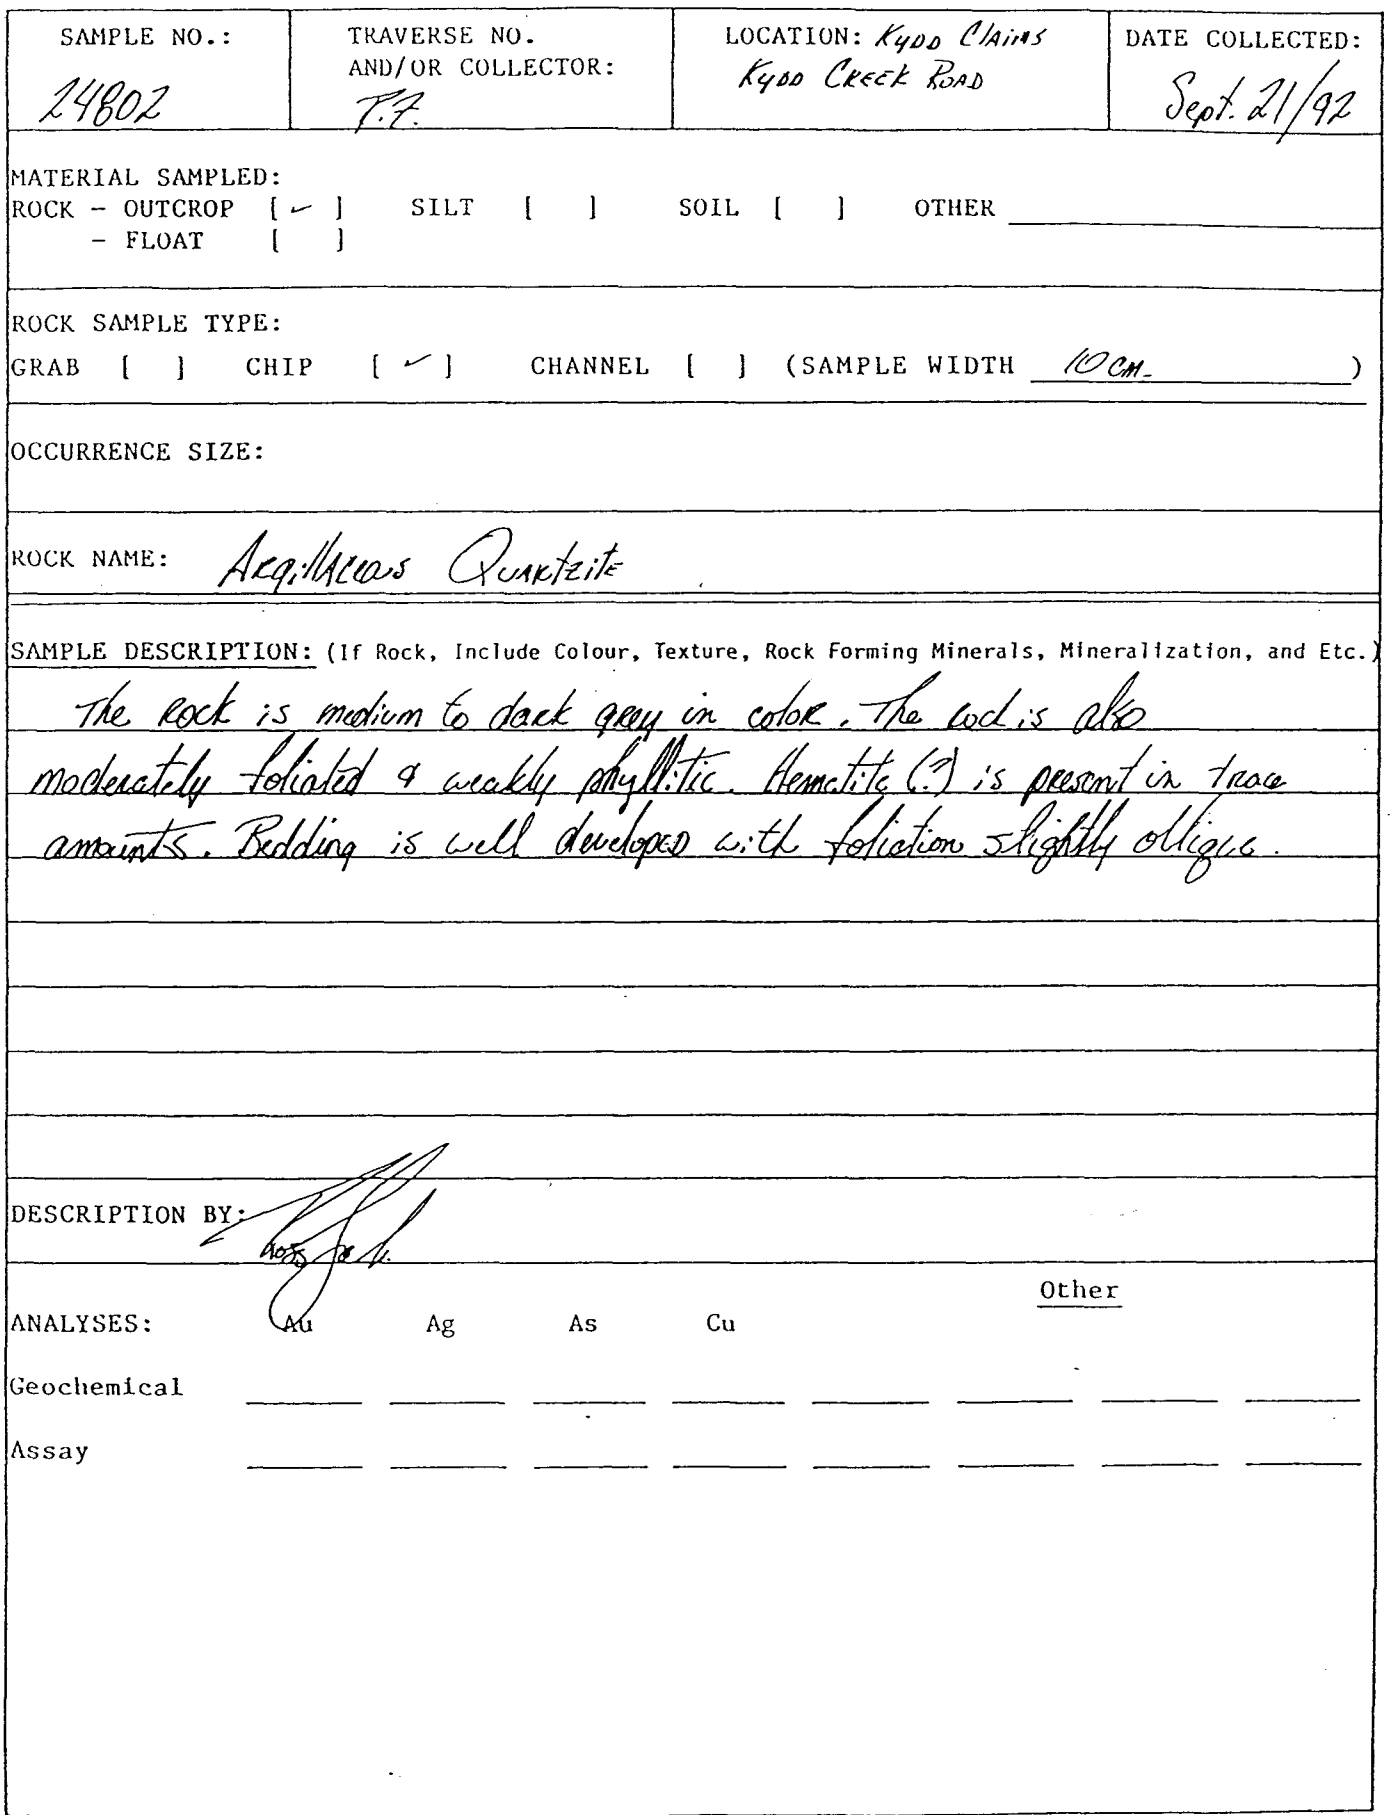 SAMPLE NO.: TRAVERSE NO. LOCATION: Kydd Claims DATE COLLECTED:
AND/OR COLLECTOR: Kydd Creek Road
24802 T.F. Sept. 21/92
MATERIAL SAMPLED:
ROCK - OUTCROP [ ✓ ] SILT [ ] SOIL [ ] OTHER
- FLOAT [ ]
ROCK SAMPLE TYPE:
GRAB [ ] CHIP [ ✓ ] CHANNEL [ ] (SAMPLE WIDTH 10 cm. )
OCCURRENCE SIZE:
ROCK NAME: Argillaceous Quartzite
SAMPLE DESCRIPTION: (If Rock, Include Colour, Texture, Rock Forming Minerals, Mineralization, and Etc.)
The rock is medium to dark grey in color. The rock is also
moderately foliated & weakly phyllitic. Hematite (?) is present in trace
amounts. Bedding is well developed with foliation slightly oblique.
DESCRIPTION BY:
Other
ANALYSES: Au Ag As Cu
Geochemical
Assay